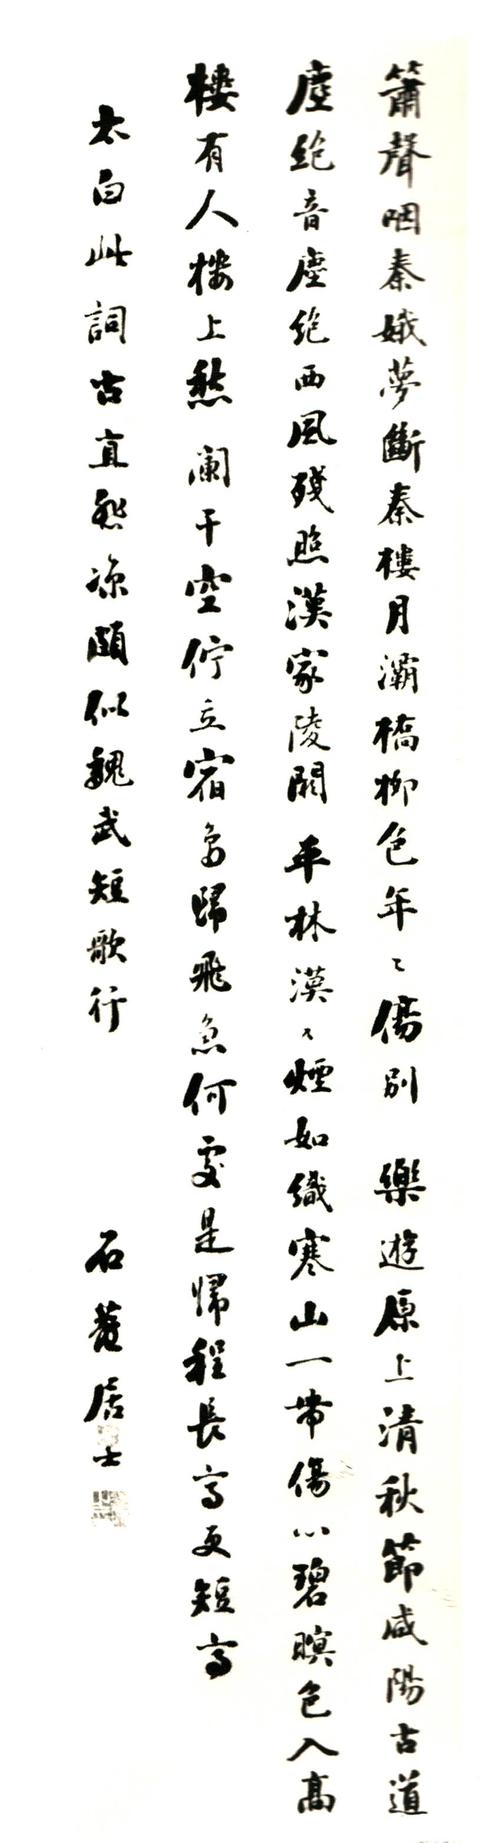 簫聲咽秦娥夢斷秦樓月灞橋柳色年々傷別 樂遊原上清秋節咸陽古道
塵絕音塵絕西風殘照漢家陵闕 平林漠々煙如織寒山一帶傷心碧暝色入高
樓有人樓上愁 闌干空佇立宿鳥歸飛急何處是歸程長亭更短亭
太白此詞古直悲涼頗似魏武短歌行 石菴居士